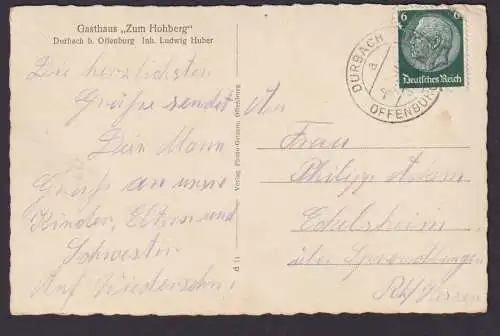 Gasthaus „Zum Hohberg"
Durbach b. Offenburg Inh. Ludwig Huber
Die herzlichsten
Grüße sendet
Dein Mann
Gruß an unsere
Kinder, Eltern und
Schwester
Auf Wiedersehn!
Verlag Photo-Grimm, Offenburg
d 11
An
Frau
Philipp Adam
Eckelsheim
über Sprendlingen
Rh/Hessen
6 6
Deutsches Reich
DURBACH
a
OFFENBURG